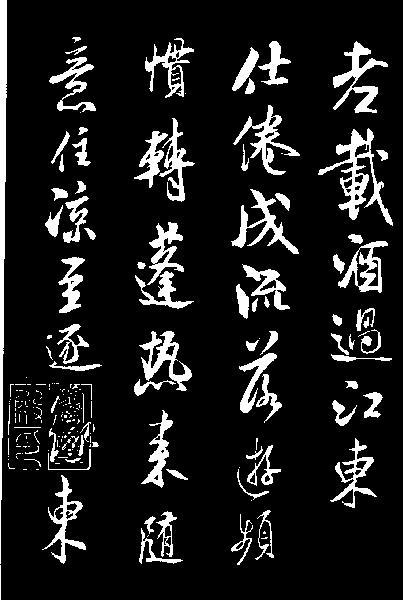 老載酒過江東
仕倦成流落遊頻
慣轉蓬热来隨
意住涼至逐東